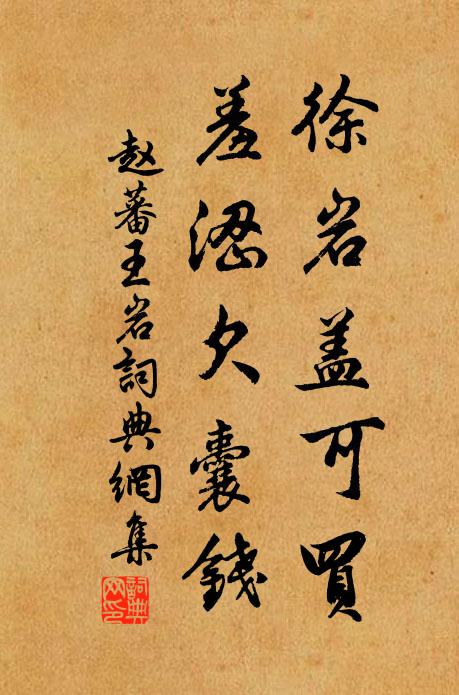 徐岩盖可買
羞澀欠囊錢
赵蕃王岩詞典網集
詞典網印